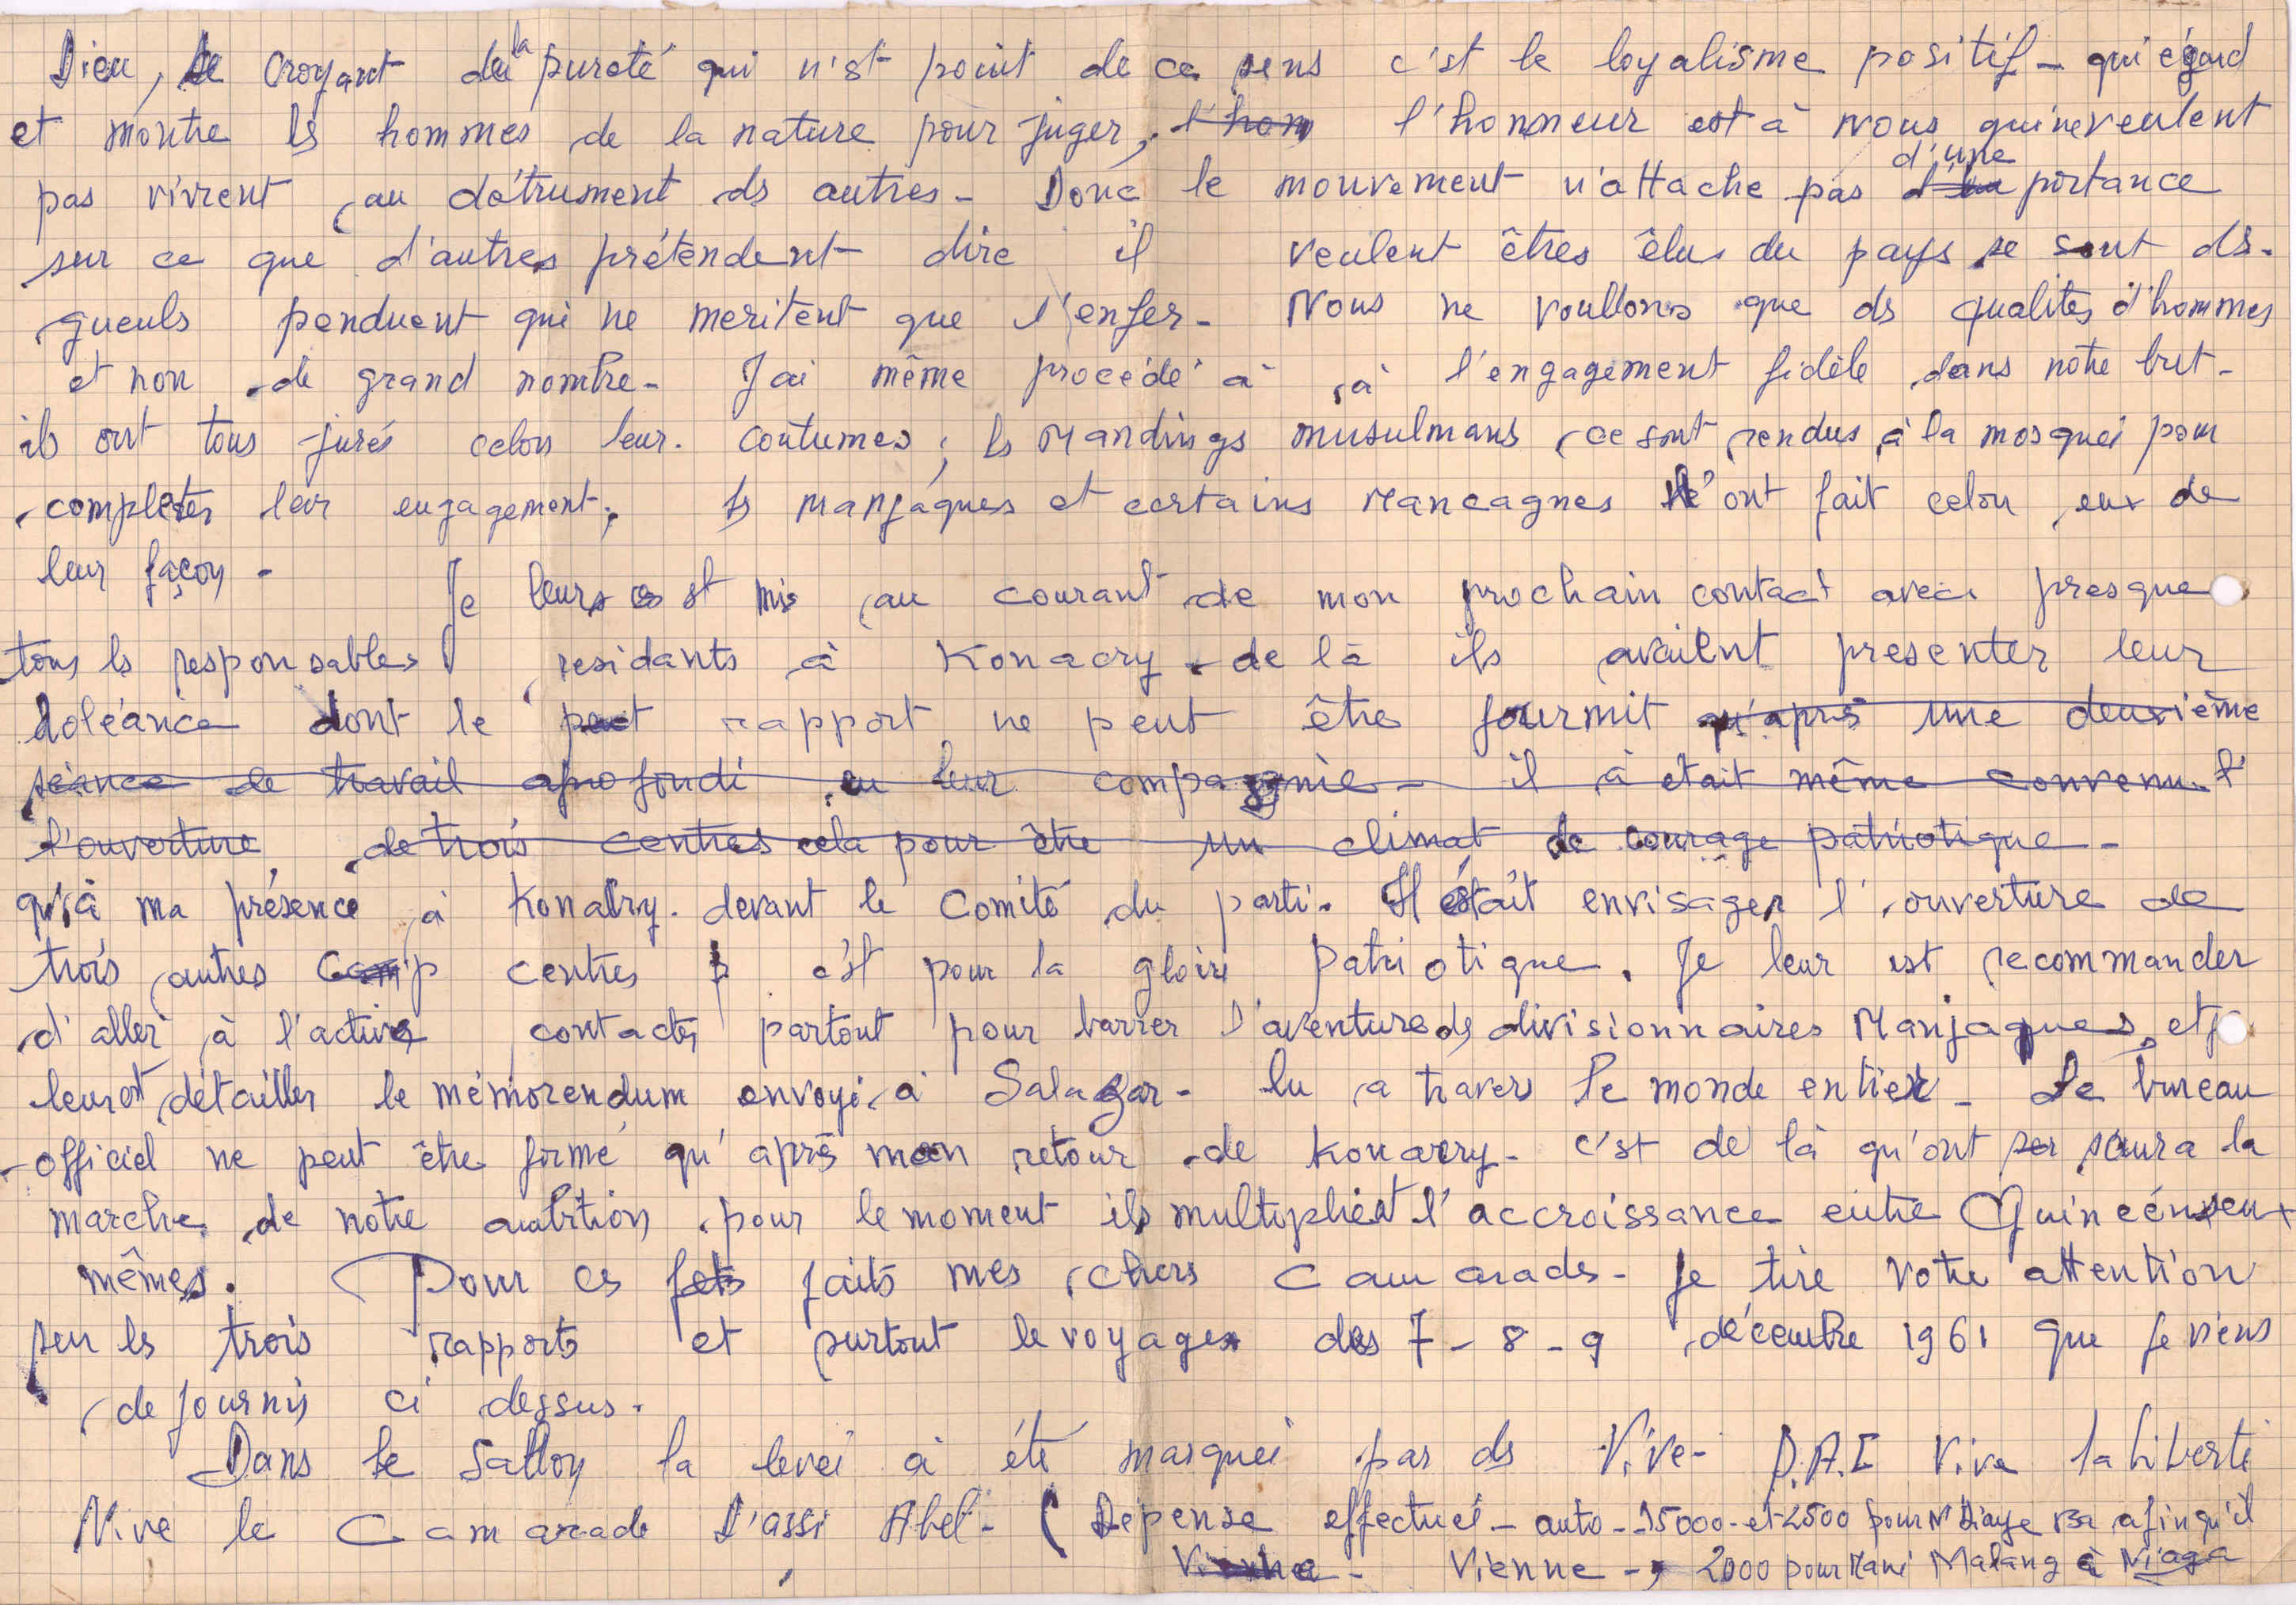 Dieu, le croyant de la pureté qui n'st point de ce sens c'st le loyalisme positif - qui égard
et montre ls hommes de la nature pour juger, l'hom l'honneur est à nous qui ne veulent
pas vivrent au détrument ds autres - Donc le mouvement n'attache pas d'une portance
sur ce que d'autres prétendent dire il veulent êtres élus du pays se sont ds.
gueuls penduent qui ne meritent que l'enfer - Nous ne voullons que ds qualités d'hommes
et non de grand nombre - J'ai même procédé à à l'engagement fidèle dans notre but -
ils ont tous jurés celon leur. coutumes, ls Mandings musulmans ce sont rendus à la mosqueé pour
completer leur engagement, ls manjaques et certains Mancagnes l'ont fait celon eux de
leur façon -
Je leurs est mis au courant de mon prochain contact avec presque
tous ls responsables residants à Konacry - de là ils availnt presenter leur
doléance dont le rapport ne peut être fourmit qu'après une deuxième
séance de travail aprofondi en leur compagnie - il à était même convenu l'
l'ouverture de trois centres cela pour être un climat de courage patriotique -
qu'à ma présence à Konakry. devant le Comité du parti. Il était envisager l'ouverture de
trois autres camp centres c'st pour la gloire Patriotique. Je leur est recommander
d'aller à l'active contacts partout pour barrer l'aventure ds divisionnaires Manjaques, et je
leur st détailler le mémorendum envoyé à Salazar - lu a travers le monde entier - Le bureau
officiel ne peut être formé qu'après mon retour de Konacry - c'st de là qu'ont saura la
marche de notre pour le moment ils multiplient l'accroissance entre Guinéen eux
mêmes. Pour cs faits mes chers camarads - Je tire votre attention
sur ls trois rapports et surtout le voyages des 7 - 8 - 9 décembre 1961 que je viens
de fournis ci dessus.
Dans le Salloy la levée à été marqueé par ds Vive - P.A.I Vive la liberté
Vive le Camarade D'assi Abel - ( Dépense effectueé - auto - 15000 - et 2500 pour N'Diaye Ba afin qu'il
Vienne - Vienne - 2000 pour Mané Malang à Niaga